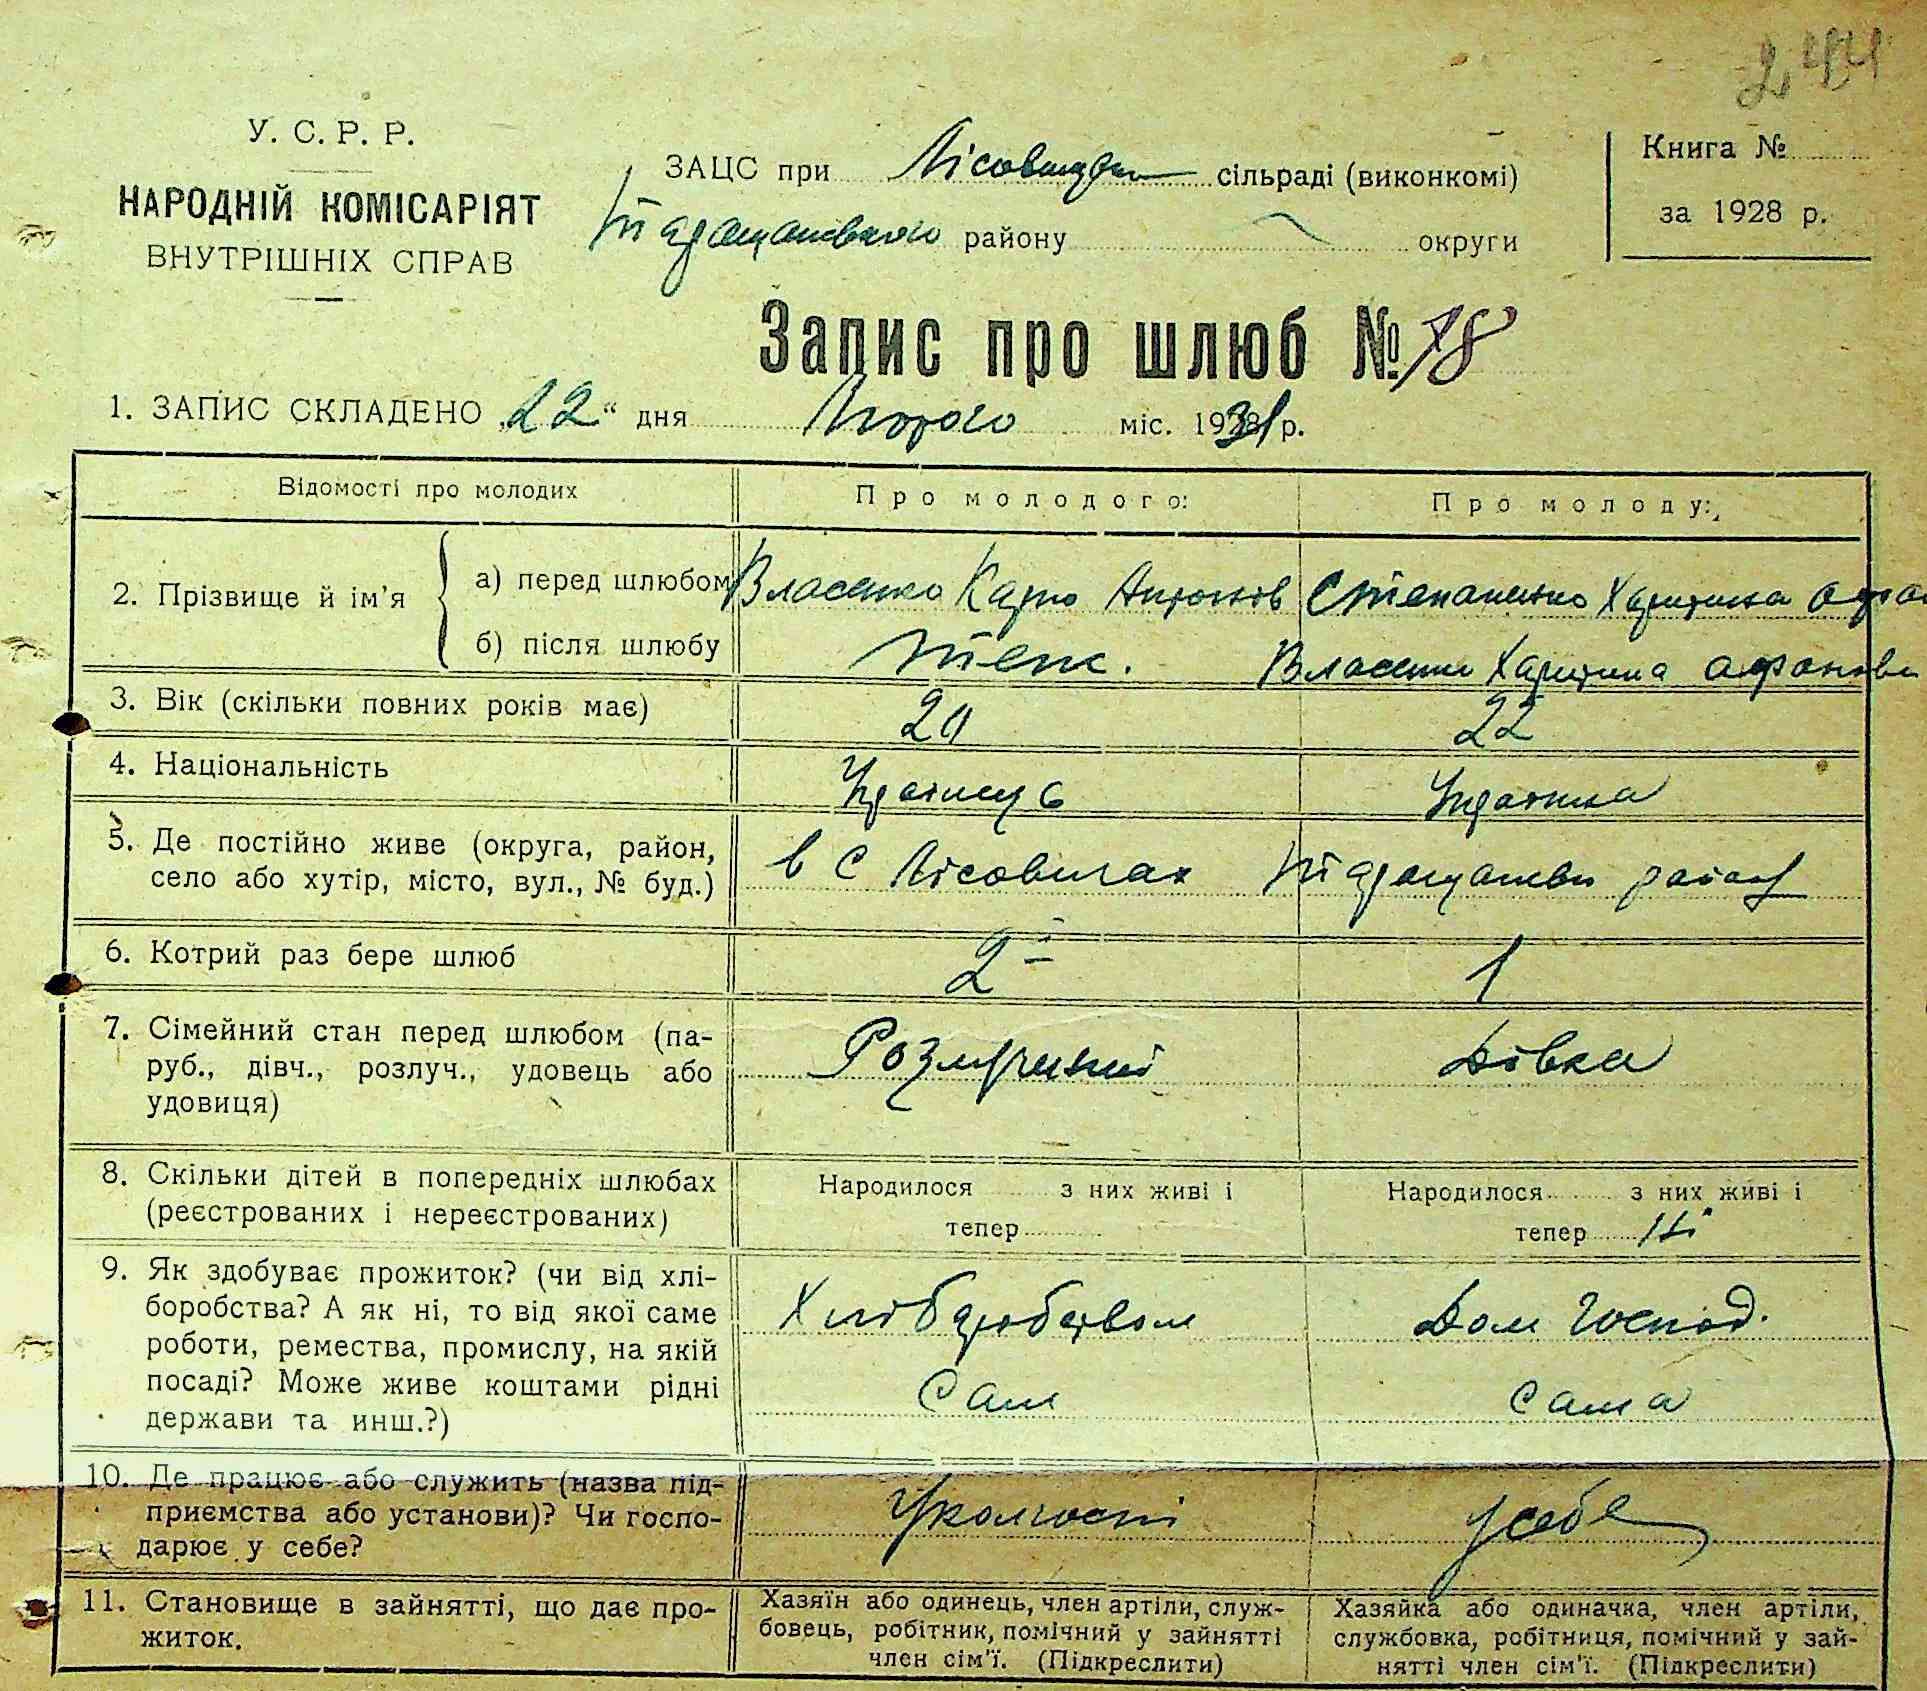 244
У. С. Р. Р.
НАРОДНІЙ КОМІСАРІЯТ
ВНУТРІШНІХ СПРАВ
ЗАЦС при сільраді (виконкомі)
Таращанського району округи
Книга №
за 1928 р.
Запис про шлюб № 78
1. ЗАПИС СКЛАДЕНО „22“ дня Лютого міс. 1931 р.
Відомості про молодих Про молодого: Про молоду:
2. Прізвище й ім'я
а) перед шлюбом Власенко Карпо Антонов Степаненко Харитина
б) після шлюбу теж. Власенко Харитина
3. Вік (скільки повних років має) 22
4. Національність Українка
5. Де постійно живе (округа, район,
село або хутір, місто, вул., № буд.) в с Лісовичах Таращански район
6. Котрий раз бере шлюб 2 1
7. Сімейний стан перед шлюбом (па-
руб., дівч., розлуч., удовець або
удовиця) Розлучений Дівка
8. Скільки дітей в попередніх шлюбах
(реєстрованих і нереєстрованих)
Народилося з них живі і
тепер
Народилося з них живі і
тепер Ні
9. Як здобуває прожиток? (чи від хлі-
боробства? А як ні, то від якої саме
роботи, ремества, промислу, на якій
посаді? Може живе коштами рідні
держави та инш.?)
Хліборобством
Сам
Дом господ.
Сама
10. Де працює або служить (назва під-
приємства або установи)? Чи госпо-
дарює у себе?
У колгоспі
у себе
11. Становище в зайнятті, що дає про-
житок.
Хазяїн або одинець, член артіли, служ-
бовець, робітник, помічний у зайнятті
член сім'ї. (Підкреслити)
Хазяйка або одиначка, член артіли,
службовка, робітниця, помічний у зай-
нятті член сім'ї. (Підкреслити)